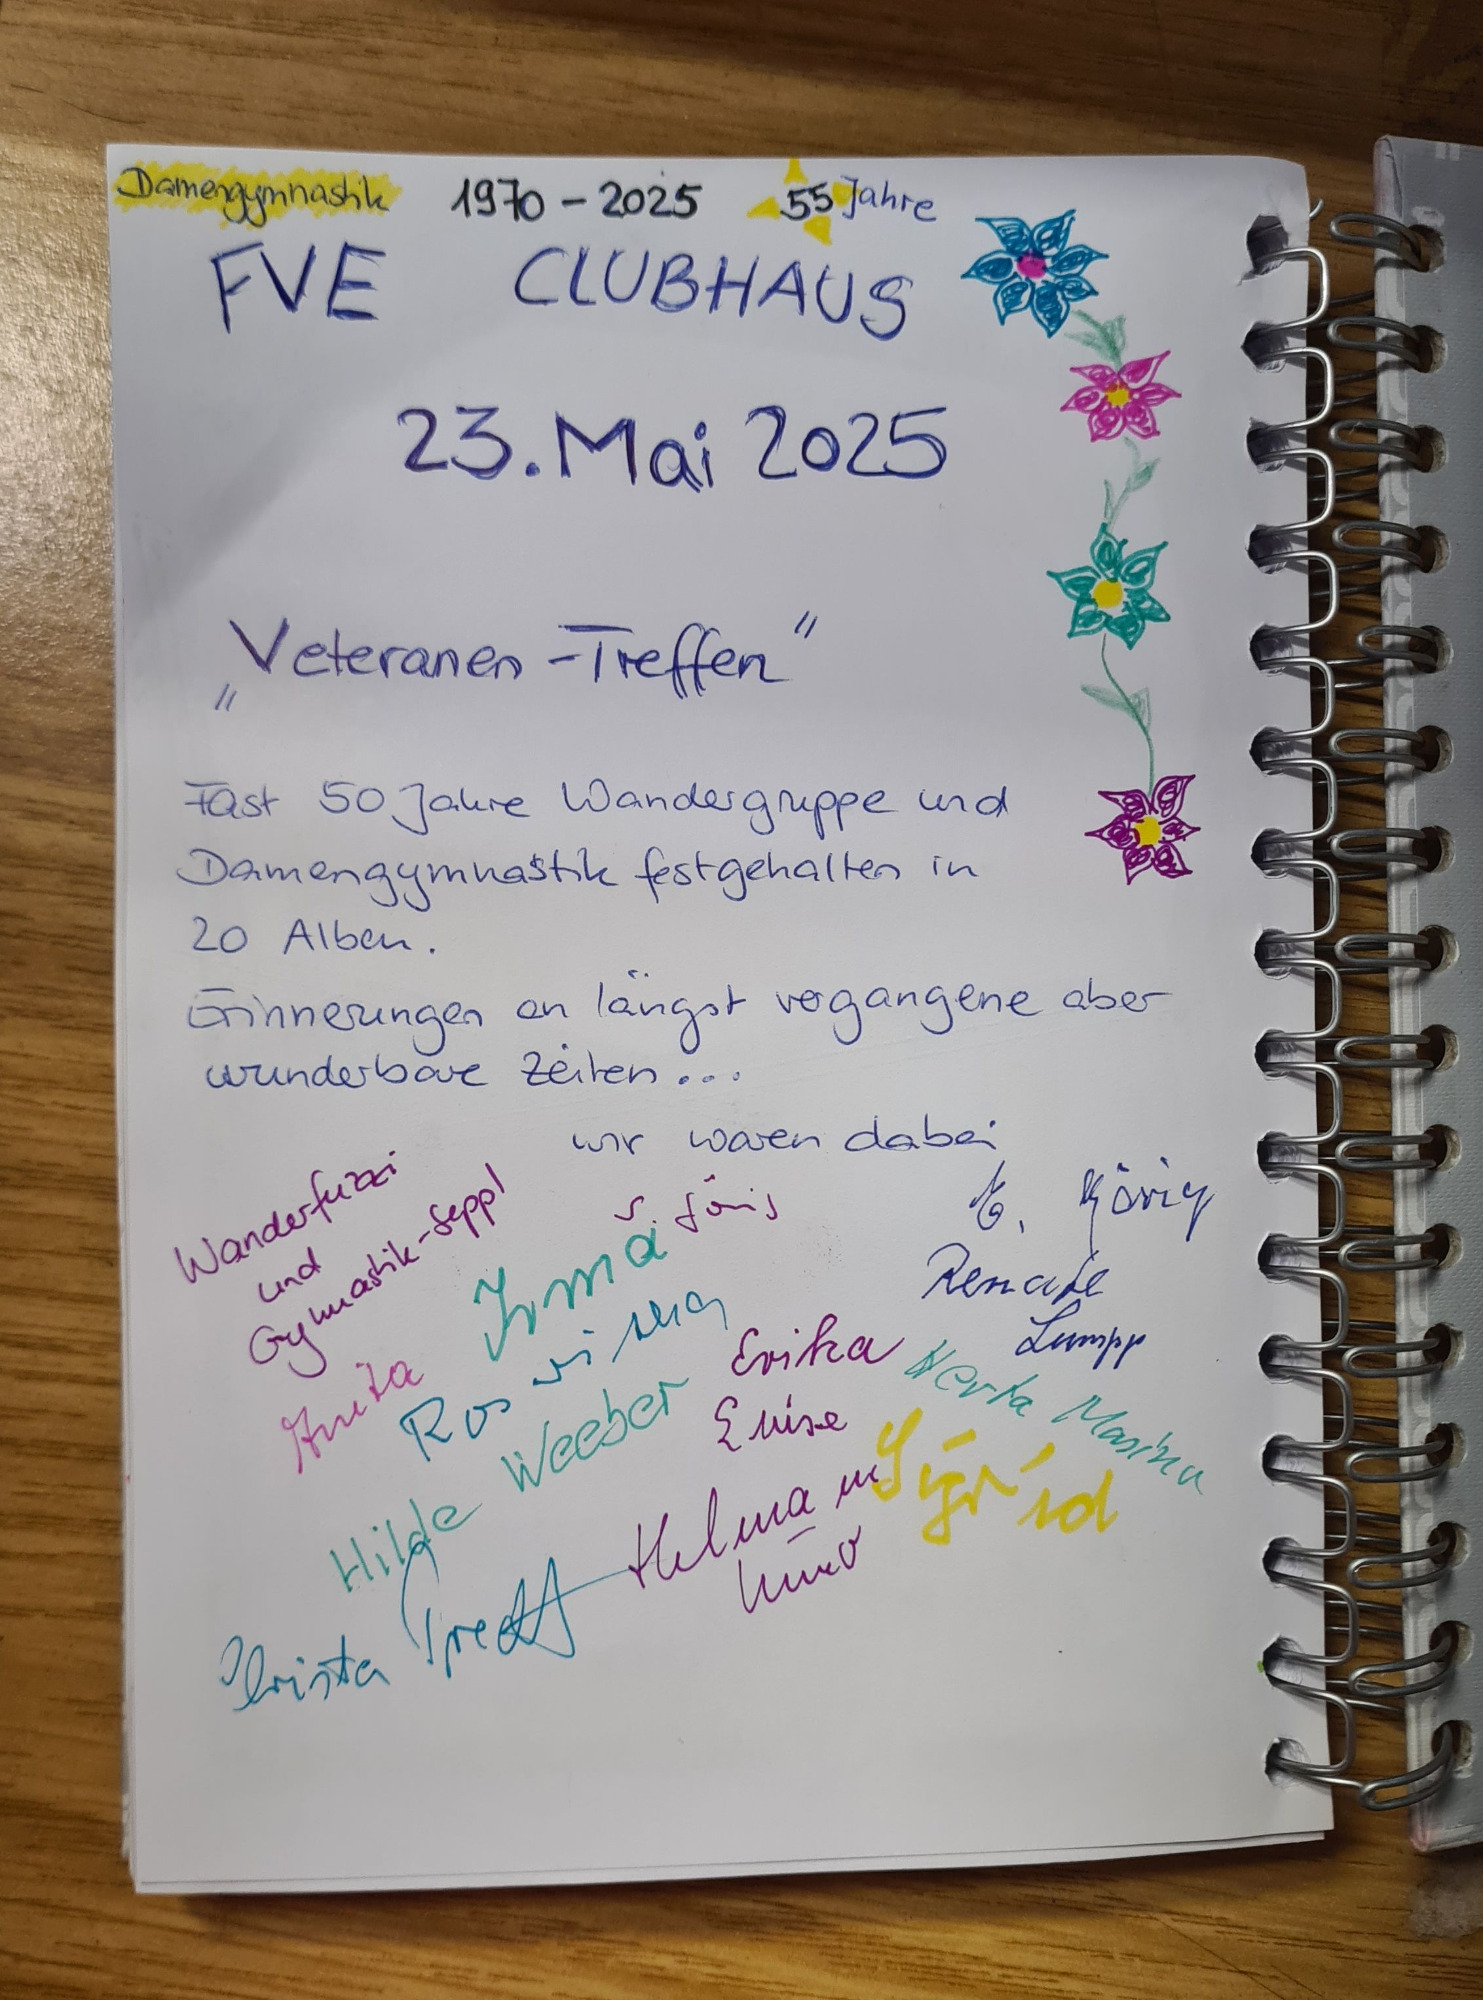 Damengymnastik 1970 - 2025 55 Jahre
FVE CLUBHAUS
23. Mai 2025
„Veteranen - Treffen"
Fast 50 Jahre Wandergruppe und
Damengymnastik festgehalten in
20 Alben.
Erinnerungen an längst vergangene aber
wunderbare Zeiten...
wir waren dabei
Wanderfuzzi
und
Gymnastik-Seppl
Irma
Renate
Lumpp
Anita
Erika
Herta Marina
Hilde Weeber
Luise
Sigrid
Helma
Christa